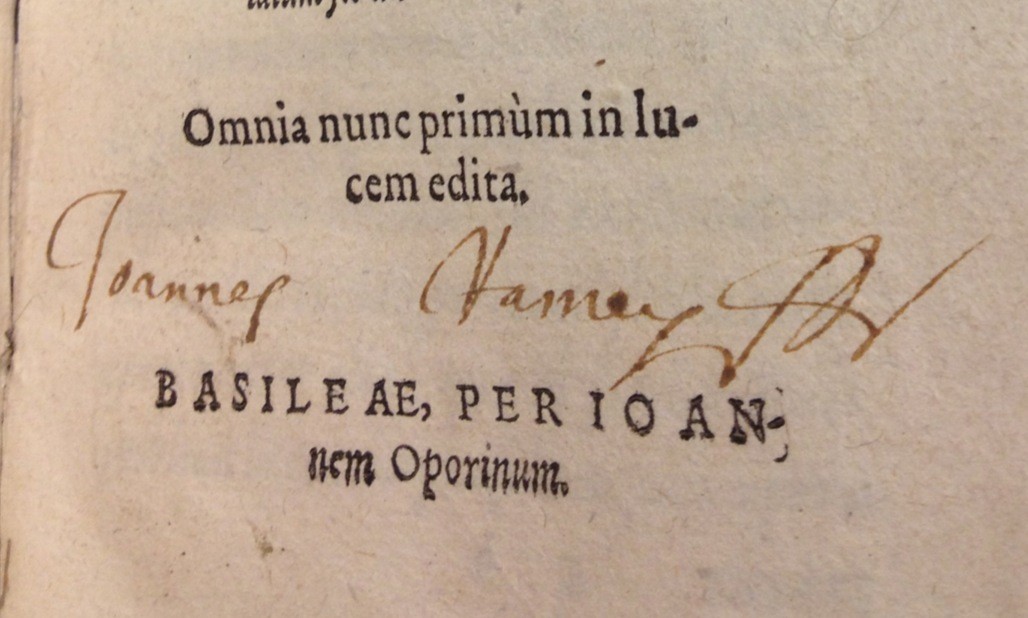 Omnia nunc primùm in lu-
cem edita.
Joannes Hamey
BASILEAE, PER IOAN-
nem Oporinum.